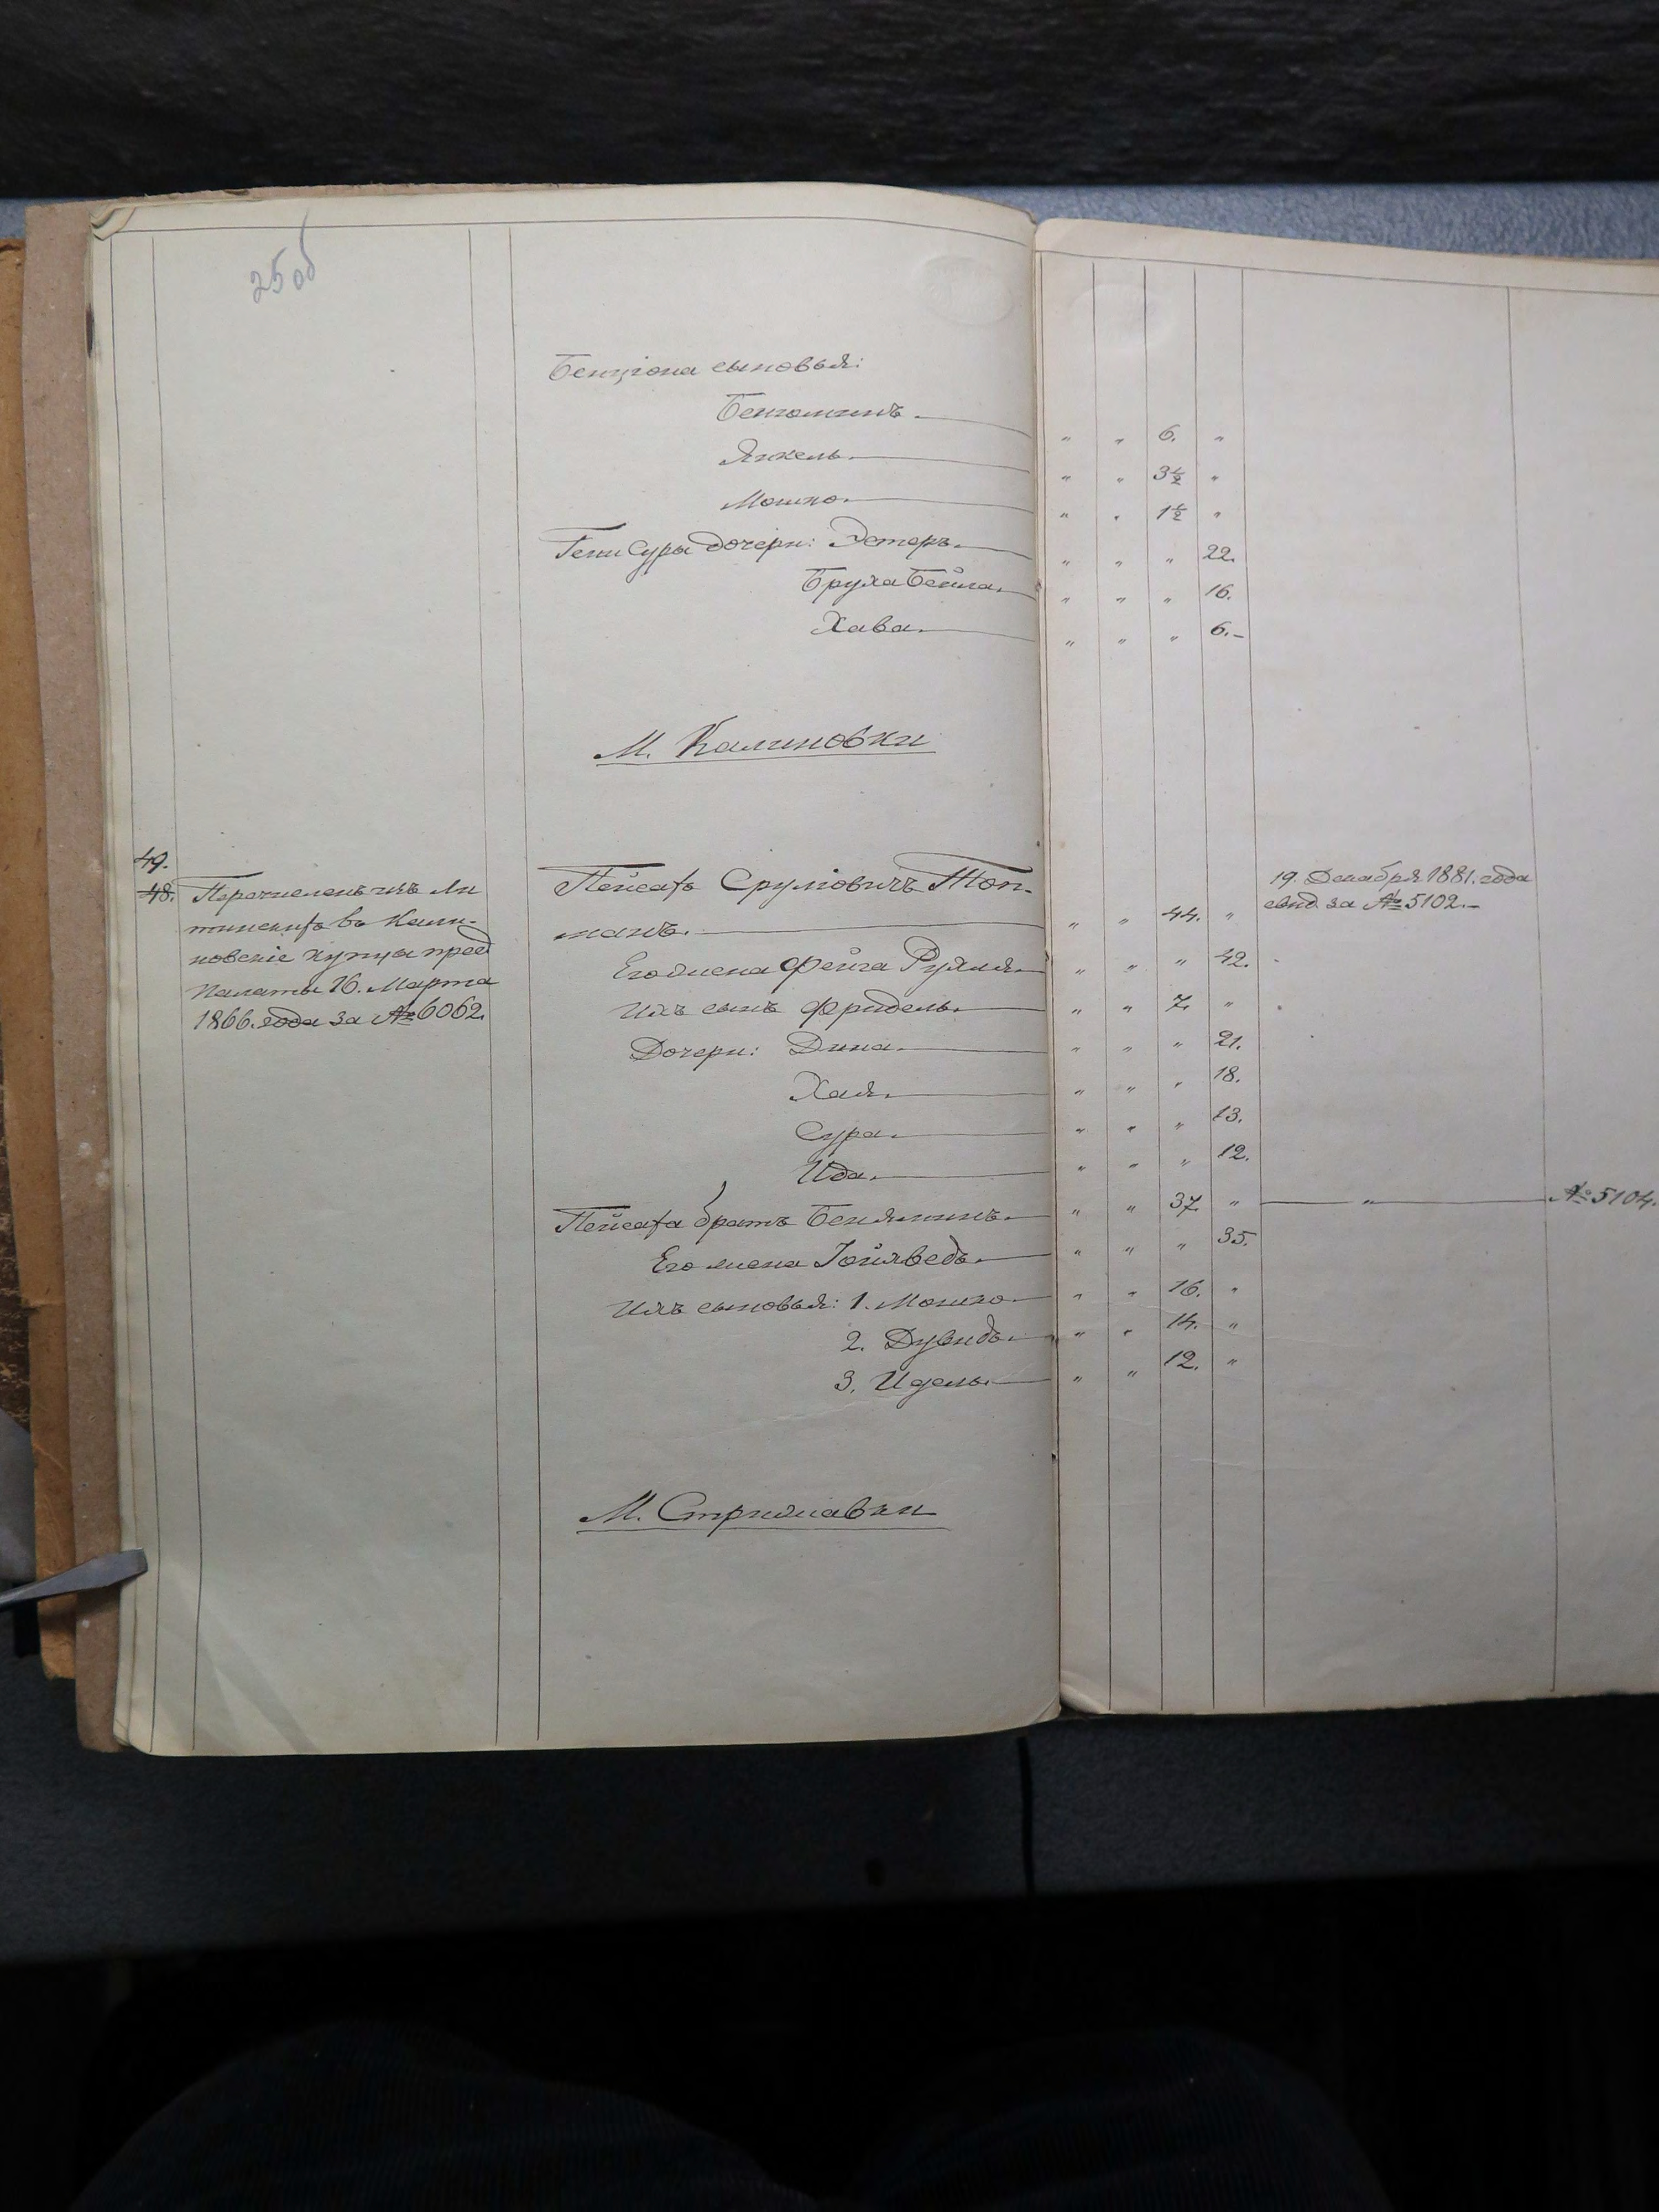 25 об
Бенціона сыновья:
Бенiоминъ. " " 6. "
Янкель. " " 3½ "
Мошко. " " 1½ "
Гени Суры дочери: Эстеръ. " " " 22.
Бруха Бейла. " " " 16.
Хава. " " " 6.-
М. Калиновки
49.
48. Перечисленъ изъ Ли Пейсахъ Сруліовичъ Топ- 19. Декабря 1881. года
тинскихъ въ Кали- манъ. " " 44. " свид. за № 5102.-
новскіе купцы пред Его жена Фейга Рухля. " " " 42.
Палаты 16. Марта Ихъ сынъ Фридель. " " 7. "
1866. года за № 6062. Дочери: Дина. " " " 21.
Хая. " " " 18.
Сура. " " " 13.
Ида. " " " 12.
Пейсаха братъ Беняминъ. " " 37. " " № 5104.
Его жена Іойхведъ. " " " 35.
Ихъ сыновья: 1. Мошко. " " 16. "
2. Дувидъ. " " 14. "
3. Идель. " " 12. "
М. Стрижавки